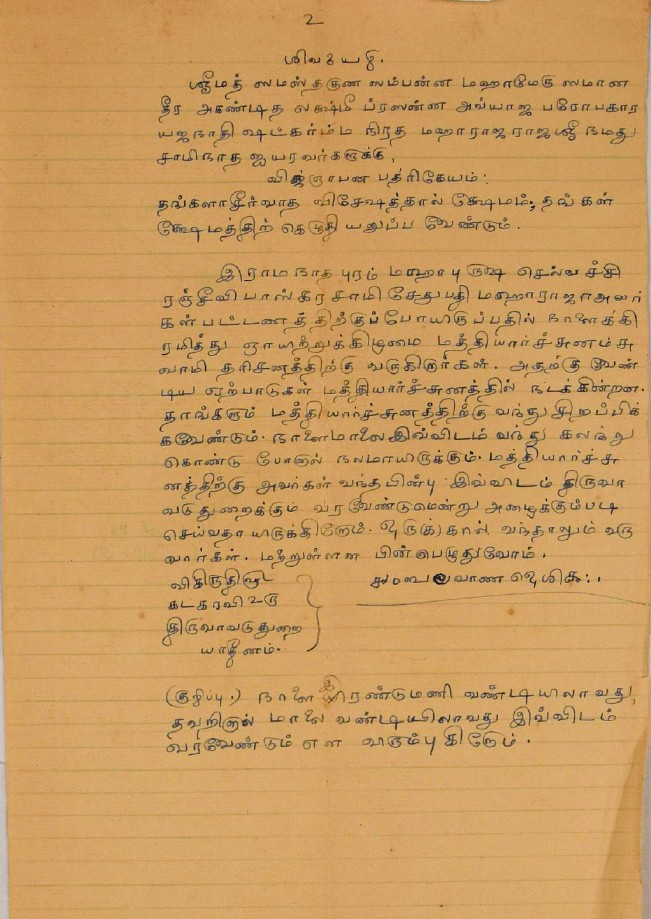 2
சிவமயம்.
ஸ்ரீமத் ஸமஸ்தகுண ஸம்பன்ன மஹாமேரு ஸமான
தீர அகண்டித லக்ஷ்மீ ப்ரஸன்ன அவ்யாஜ பரோபகார
யஜநாதி ஷட்கர்ம்ம நிரத மஹாராஜராஜஸ்ரீ நமது
சாமிநாத ஐயரவர்களுக்கு,
விஜ்ஞாபன பத்ரிகேயம்:
தங்களாசீர்வாத விசேஷத்தால் க்ஷேமம்; தங்கள்
க்ஷேமத்திற் கெழுதி யனுப்ப வேண்டும்.
இராமநாதபுரம் மஹா புருஷ செல்வச் சி
ரஞ்சீவி பாஸ்கரசாமி சேதுபதி மஹாராஜா அவர்
கள் பட்டணத்திற்குப் போயிருப்பதில் நாளைக்கி
ரமித்து ஞாயிற்றுக்கிழமை மத்தியார்ச்சுனம் சு
வாமி தரிசனத்திற்கு வருகிறார்கள். அதற்கு வேண்
டிய ஏற்பாடுகள் மத்தியார்ச்சுனத்தில் நடக்கின்றன.
தாங்களும் மத்தியார்ச்சுனத்திற்கு வந்து சிறப்பிக்
கவேண்டும். நாளைமாலை இவ்விடம் வந்து கலந்து
கொண்டு போனால் நலமாயிருக்கும். மத்தியார்ச்சு
னத்திற்கு அவர்கள் வந்தபின்பு இவ்விடம் திருவா
வடுதுறைக்கும் வர வேண்டுமென்று அழைக்கும்படி
செய்வதாயிருக்கிறோம். ஒரு(கு)கால் வந்தாலும் வரு
வார்கள். மற்றுள்ளன பின்பெழுதுவோம்.
விகிருதி௵ அம்பலவாண தேசிக:.
கடகரவி ௨௫
திருவாவடுதுறை
யாதீனம்.
(குறிப்பு.) நாளை இரண்டுமணி வண்டியிலாவது,
தவறினால் மாலை வண்டியிலாவது இவ்விடம்
வரவேண்டும் என விரும்புகிறோம்.